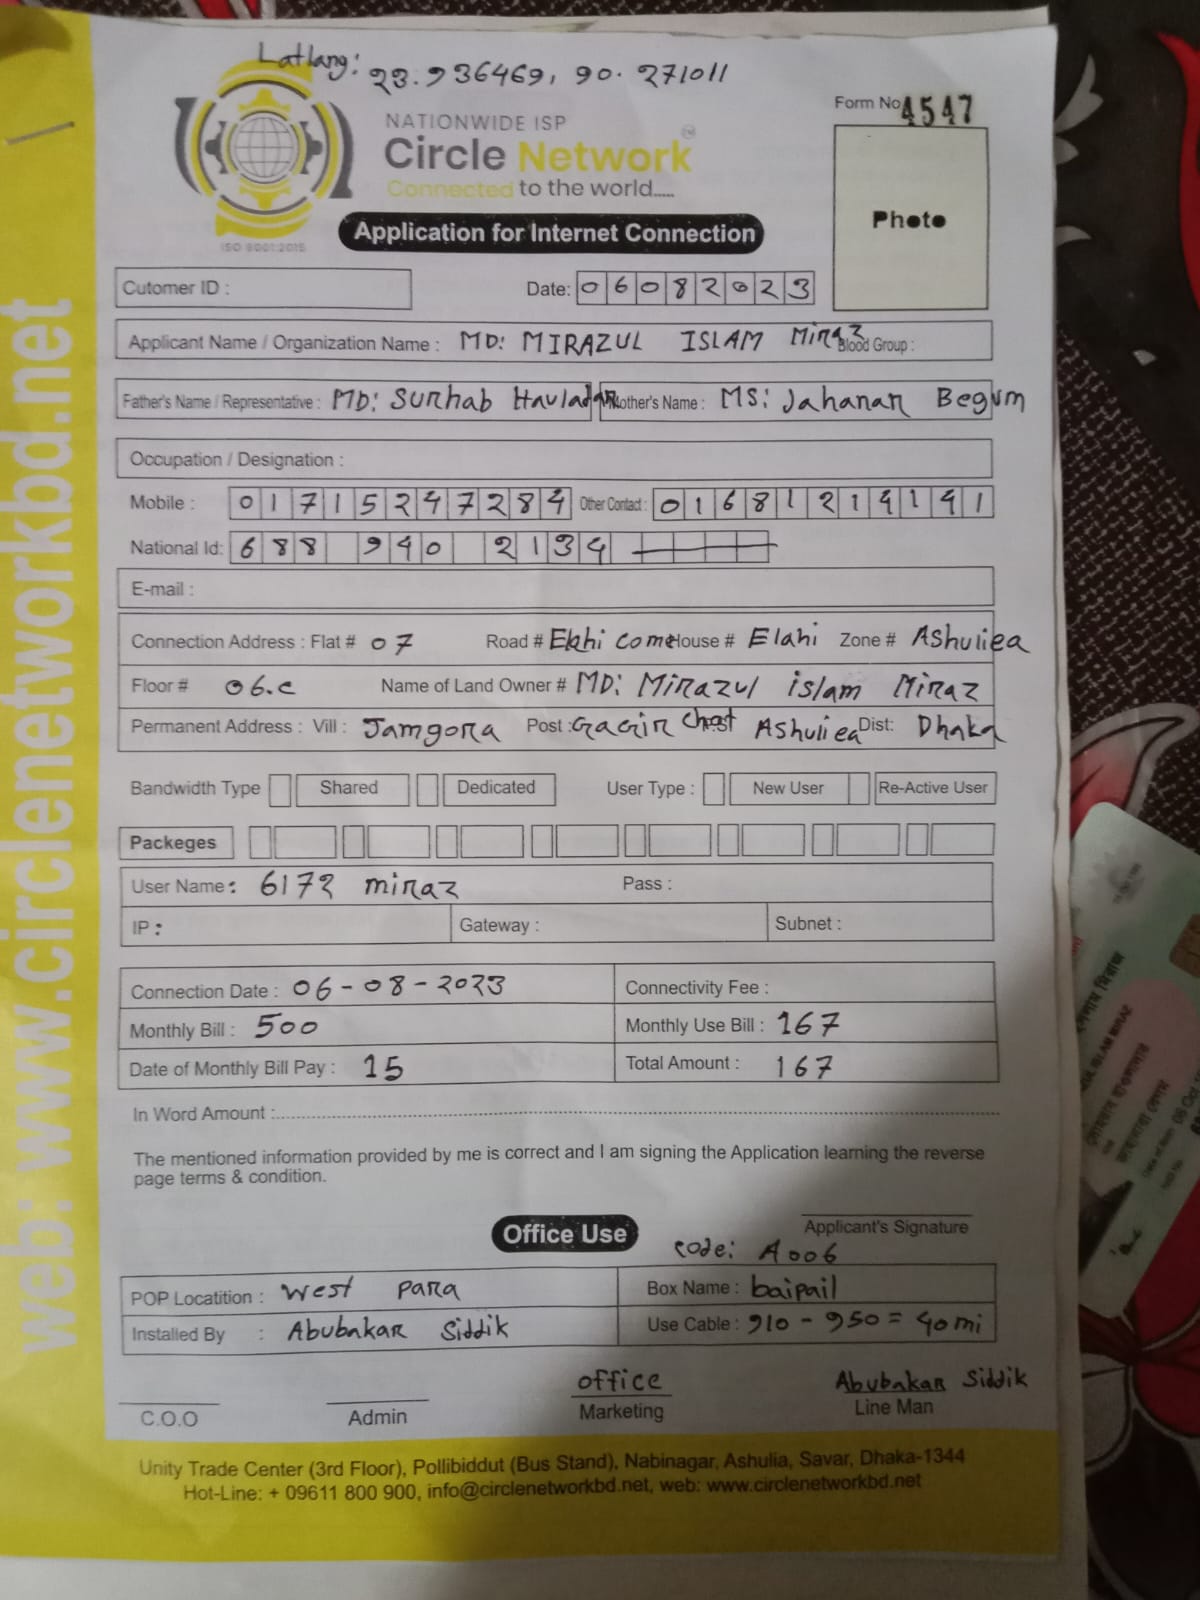 Latlang: 23.936469, 90.271011
NATIONWIDE ISP
Circle Network
Connected to the world.....
ISO 9001:2015
Form No 4547
Photo
Application for Internet Connection
Cutomer ID :
Date: 06082023
Applicant Name / Organization Name : MD: MIRAZUL ISLAM Miraz Blood Group :
Father's Name / Representative : MD: Surhab Havladar Mother's Name : MS: Jahanar Begum
Occupation / Designation :
Mobile : 01715247284 Other Contact : 01681214141
National Id: 688 940 2134
E-mail :
Connection Address : Flat # 07 Road # House # Elahi Zone # Ashuliea
Floor # 06.c Name of Land Owner # MD: Mirazul islam Miraz
Permanent Address : Vill : Jamgora Post : Gagir Chast Ashuliea Dist: Dhaka
Bandwidth Type Shared Dedicated User Type : New User Re-Active User
Packeges
User Name : 6172 miraz Pass :
IP : Gateway : Subnet :
Connection Date : 06-08-2023 Connectivity Fee :
Monthly Bill : 500 Monthly Use Bill : 167
Date of Monthly Bill Pay : 15 Total Amount : 167
In Word Amount :
The mentioned information provided by me is correct and I am signing the Application learning the reverse
page terms & condition.
Applicant's Signature
Office Use
code: A006
POP Locatition : west para Box Name : baipail
Installed By : Abubakar Siddik Use Cable : 910 - 950 = 40 mi
C.O.O
Admin
office
Marketing
Abubakar Siddik
Line Man
Unity Trade Center (3rd Floor), Pollibiddut (Bus Stand), Nabinagar, Ashulia, Savar, Dhaka-1344
Hot-Line: + 09611 800 900, info@circlenetworkbd.net, web: www.circlenetworkbd.net
web: www.circlenetworkbd.net